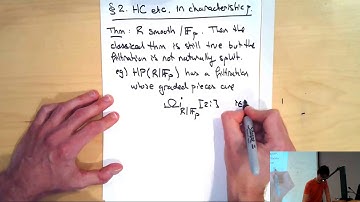 § 2. HC etc. in characteristic p.
Thm: R smooth / 𝔽p. Then the
classical thm is still true but the
filtration is not naturally split.
eg) HP(R/𝔽p) has a filtration
whose graded pieces are
Ω^i_{R/𝔽p}[2i]